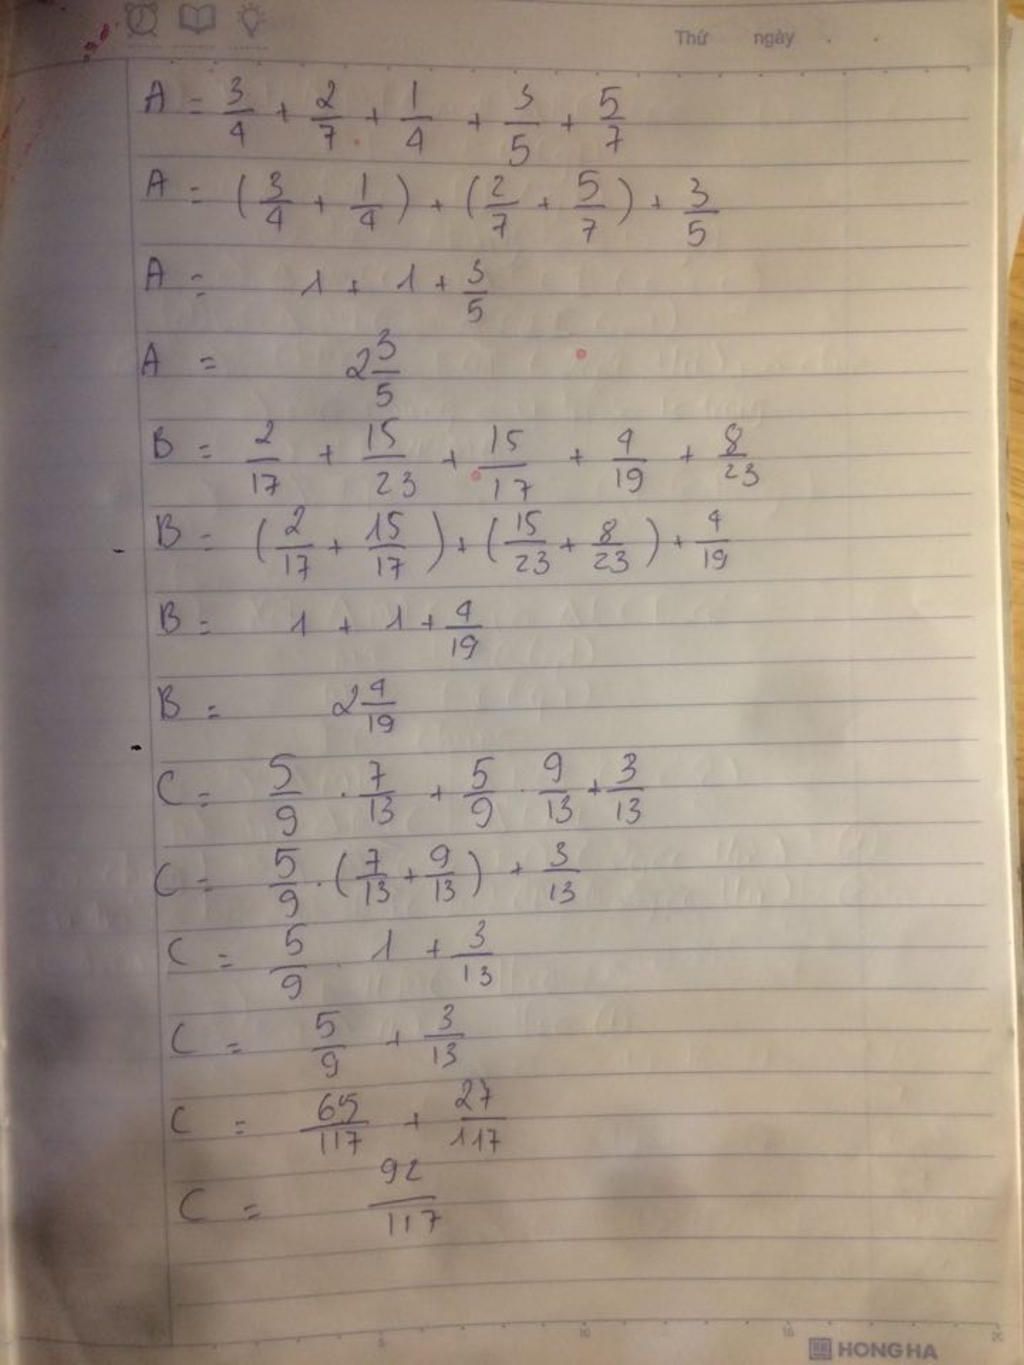 Thứ ngày
A = 3/4 + 2/7 + 1/4 + 3/5 + 5/7
A = (3/4 + 1/4) + (2/7 + 5/7) + 3/5
A = 1 + 1 + 3/5
A = 2 3/5
B = 2/17 + 15/23 + 15/17 + 4/19 + 8/23
B = (2/17 + 15/17) + (15/23 + 8/23) + 4/19
B = 1 + 1 + 4/19
B = 2 4/19
C = 5/9 . 7/13 + 5/9 . 9/13 + 3/13
C = 5/9 . (7/13 + 9/13) + 3/13
C = 5/9 . 1 + 3/13
C = 5/9 + 3/13
C = 65/117 + 27/117
C = 92/117
5 10 15 20
HONG HA